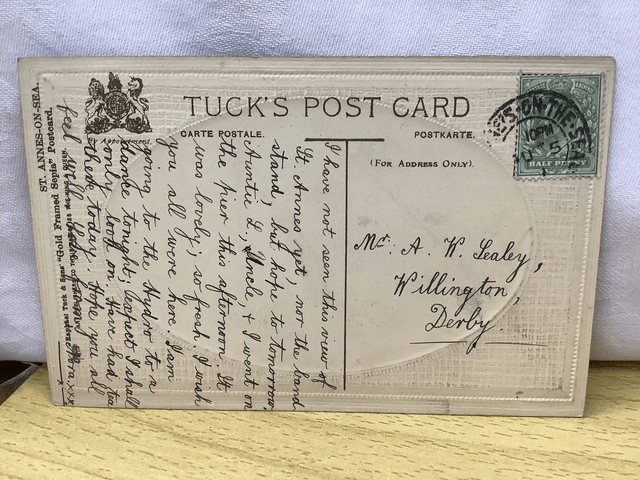 TUCK'S POST CARD
CARTE POSTALE.
POSTKARTE.
(FOR ADDRESS ONLY).
HALF PENNY
ON-THE-SEA
Mr. A. W. Sealey,
Willington,
Derby
I have not seen this view of
St. Annes yet, nor the band
stand, but hope to tomorrow
Auntie L., Uncle & I went on
the pier this afternoon. It
was lovely, so fresh. I wish
you all were here. I am
going to the Hydro to a
dance tonight, expect I shall
only look on. Have had tea
there today. Hope you all
feel well
ST. ANNES-ON-SEA.
"Gold Framed Sepia" Postcard.
Raphael Tuck & Sons